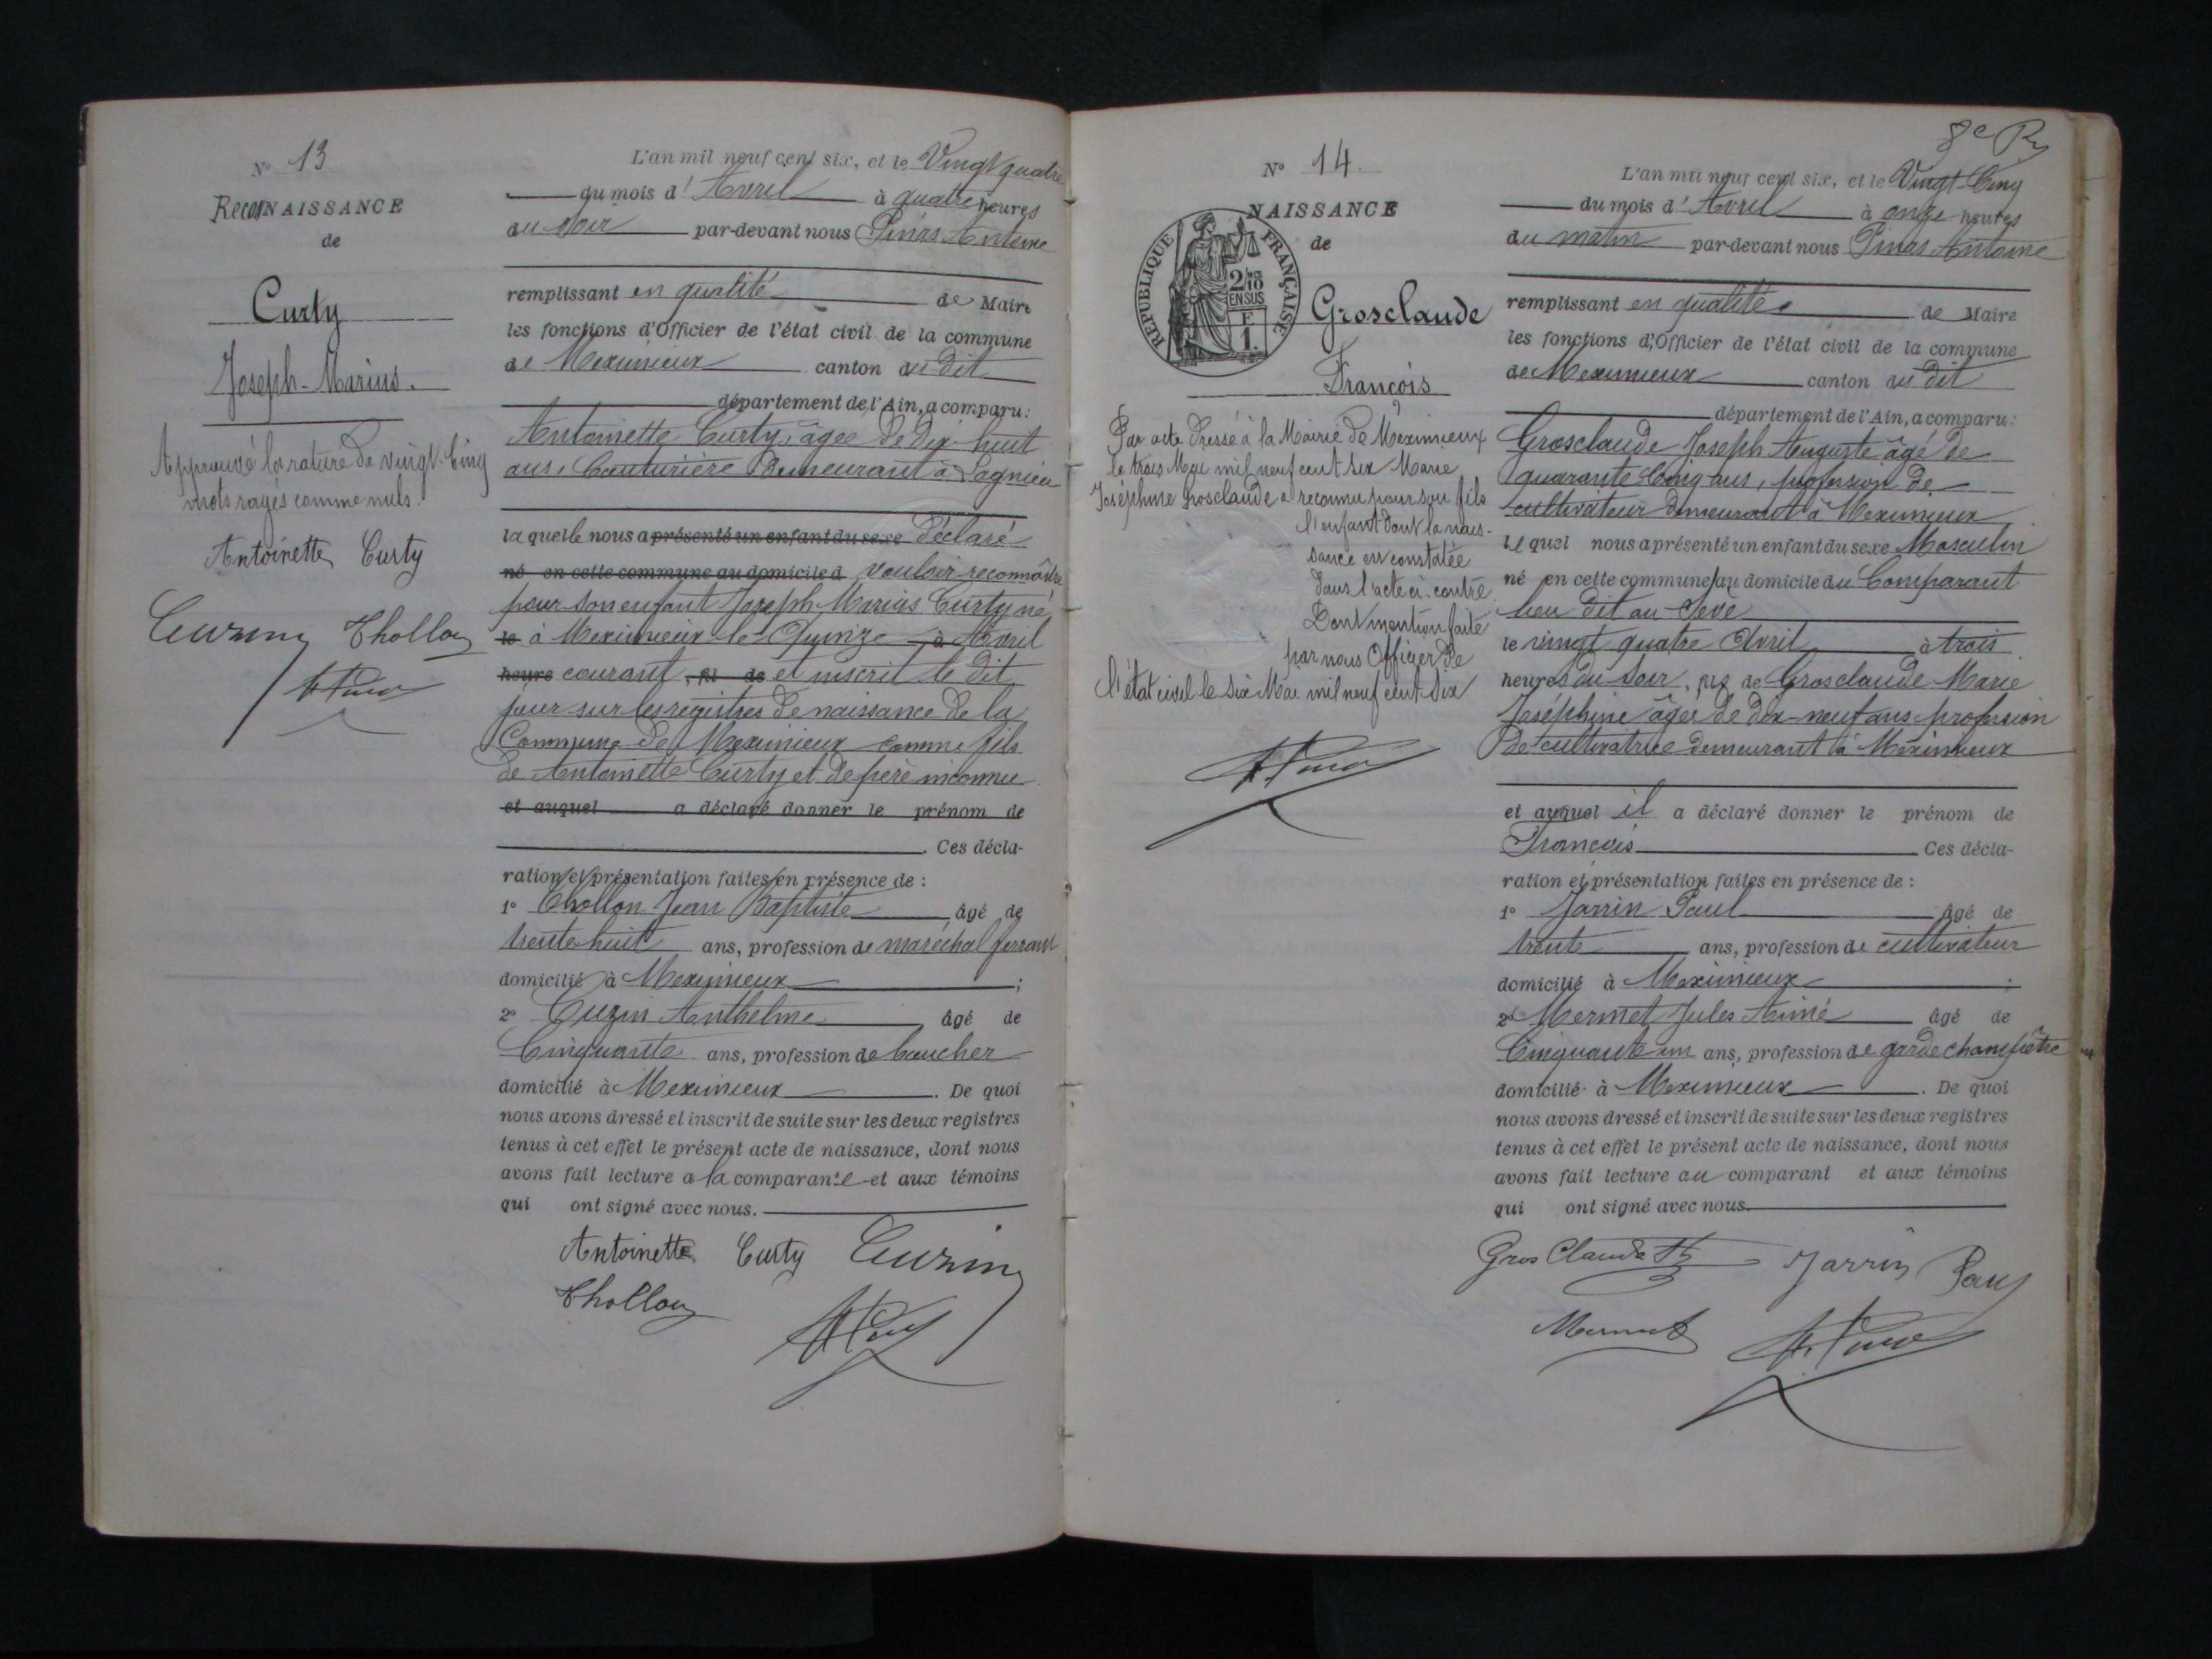 N° 13
RecoNNAISSANCE
de
Curty
Joseph-Marius.
Approuvé la rature de vingt-cinq
mots rayés comme nuls.
Antoinette Curty
Cuzin Chollon
L'an mil neuf cent six, et le Vingt quatre
du mois d'Avril à quatre heures
du soir par-devant nous Pinas Antoine
remplissant en qualité de Maire
les fonctions d'Officier de l'état civil de la commune
de Meximieux canton du dit
département de l'Ain, a comparu:
Antoinette Curty, âgée de dix-huit
ans, Couturière demeurant à Lagnieu
la quelle nous a présenté un enfant du sexe déclaré
né en cette commune au domicile d vouloir reconnaître
pour son enfant Joseph Marius Curty né
le à Meximieux le Quinze à Avril
heure courant, fil de et inscrit le dit
jour sur les registres de naissance de la
Commune de Meximieux comme fils
de Antoinette Curty et de père inconnu
et auquel a déclaré donner le prénom de
Ces décla-
ration et présentation faites en présence de :
1° Chollon Jean Baptiste âgé de
trente huit ans, profession de maréchal ferrant
domicilié à Meximieux ;
2° Cuzin Anthelme âgé de
Cinquante ans, profession de boucher
domicilié à Meximieux. De quoi
nous avons dressé et inscrit de suite sur les deux registres
tenus à cet effet le présent acte de naissance, dont nous
avons fait lecture a la comparante et aux témoins
qui ont signé avec nous.
Antoinette Curty Cuzin
Chollon
8e Rs
N° 14.
NAISSANCE
de
REPUBLIQUE FRANÇAISE
2/10
EN SUS
F
1.
Grosclaude
François
Par acte dressé à la Mairie de Meximieux
le trois Mai mil neuf cent six Marie
Joséphine Grosclaude a reconnu pour son fils
l'enfant dont la nais-
sance est constatée
dans l'acte ci-contre
Dont mention faite
par nous Officier de
l'état civil le six Mai mil neuf cent six
L'an mil neuf cent six, et le Vingt-Cinq
du mois d'Avril à onze heures
du matin par-devant nous Pinas Antoine
remplissant en qualité de Maire
les fonctions d'Officier de l'état civil de la commune
de Meximieux canton du dit
département de l'Ain, a comparu:
Grosclaude Joseph Auguste âgé de
quarante cinq ans, profession de
cultivateur demeurant à Meximieux
lequel nous a présenté un enfant du sexe Masculin
né en cette commune au domicile du Comparant
lieu dit au
le vingt quatre Avril à trois
heures du soir, fils de Grosclaude Marie
Joséphine âgée de dix-neuf ans profession
de cultivatrice demeurant à Meximieux
et auquel il a déclaré donner le prénom de
François Ces décla-
ration et présentation faites en présence de :
1° Jarrin Paul âgé de
trente ans, profession de cultivateur
domicilié à Meximieux ;
2° Mermet Jules Aimé âgé de
Cinquante un ans, profession de garde champêtre
domicilié à Meximieux. De quoi
nous avons dressé et inscrit de suite sur les deux registres
tenus à cet effet le présent acte de naissance, dont nous
avons fait lecture au comparant et aux témoins
qui ont signé avec nous.
Gros Claude Jarrin Paul
Mermet